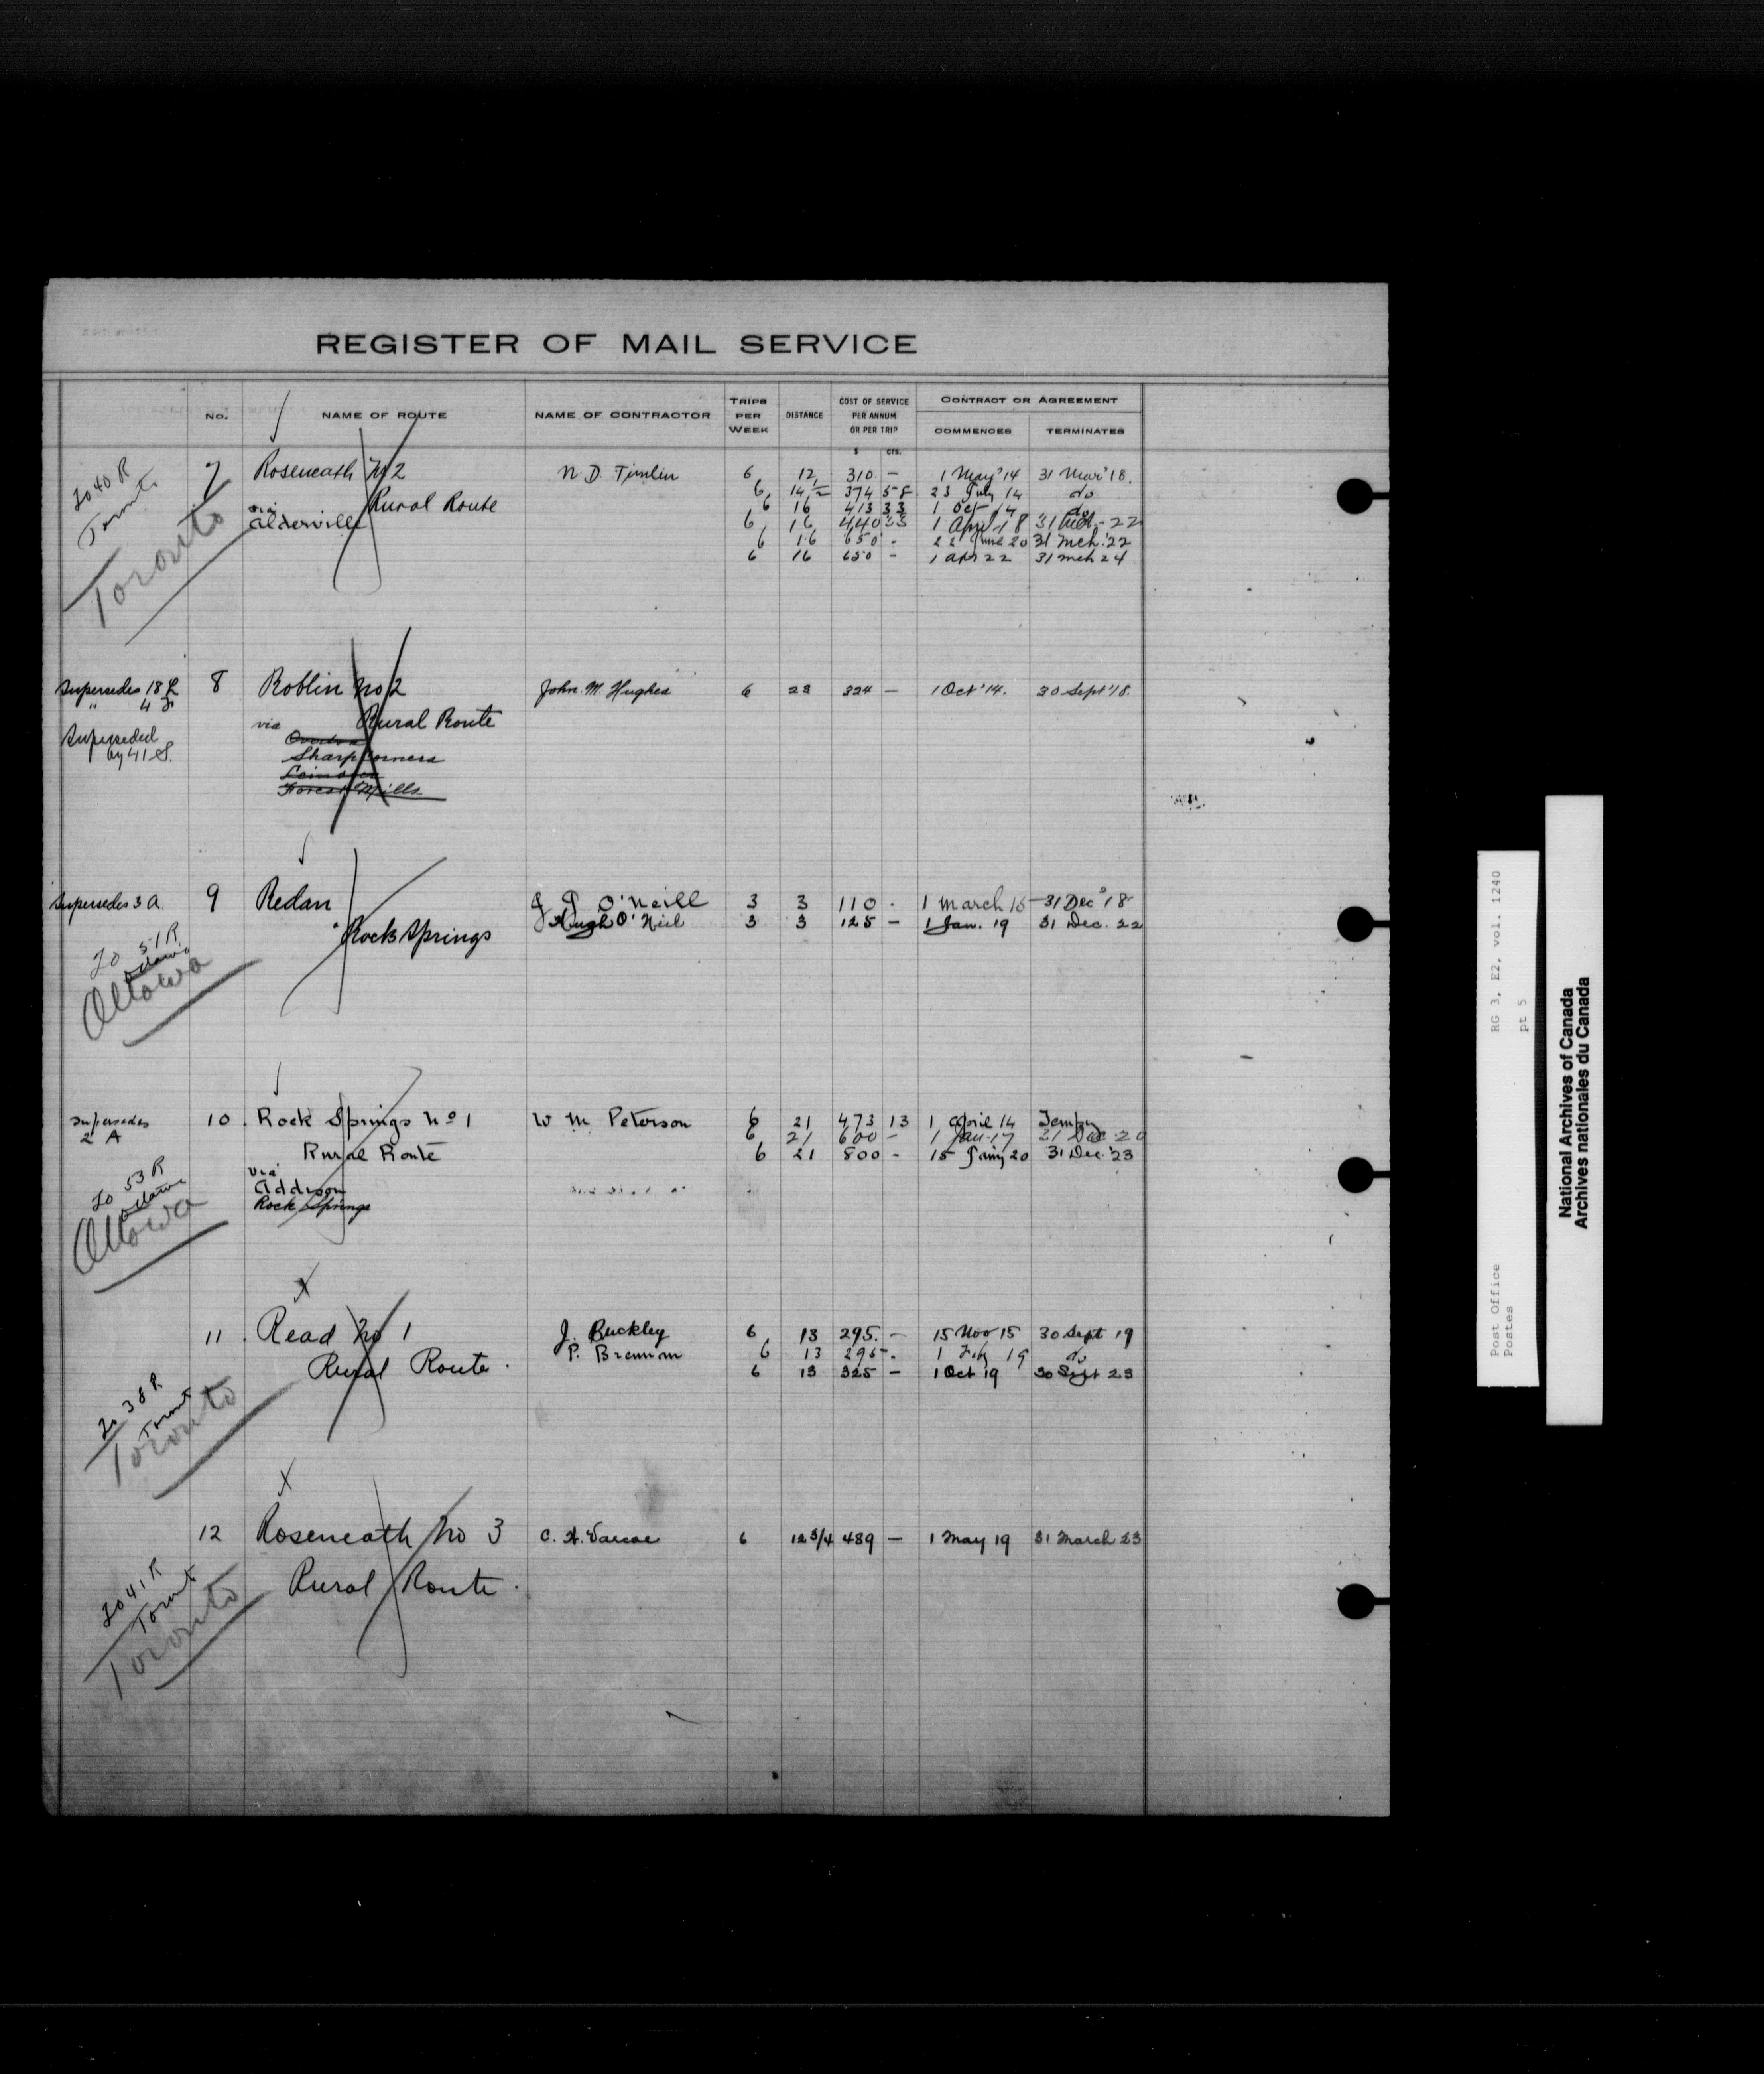 REGISTER OF MAIL SERVICE
No. NAME OF ROUTE NAME OF CONTRACTOR TRIPS PER WEEK DISTANCE COST OF SERVICE PER ANNUM OR PER TRIP CONTRACT OR AGREEMENT
COMMENCES TERMINATES
$ CTS.
To 40 R Toronto
Toronto
7 Roseneath No 2 N. D. Timlin 6 12 310 – 1 May '14 31 Mar '18.
Rural Route 6 14½ 374 58 23 July 14 do
via 6 16 413 33 1 Oct 14 do
Alderville 6 16 440 1 April 18 31 22
6 16 650 - 22 June 20 31 Mch. '22
6 16 650 – 1 apr 22 31 mch 24
Supersedes 18 L 8 Roblin No 2 John. M. Hughes 6 23 324 – 1 Oct '14. 30 Sept '18.
" 4
Superseded by 41 S.
via Rural Route
Sharp Corners
Forest Mills
Supersedes 3 A. 9 Redan O'Neill 3 3 110 . 1 March 15 31 Dec '18
Rock Springs Hugh O'Neil 3 3 125 – 1 Jan. 19 31 Dec. 22
To 51 R. Ottawa
Ottawa
Supersedes 2 A 10. Rock Springs No 1 W M Peterson 6 21 473 13 1 April 14 Tempy
6 21 600 – 1 Jan 17 31 Dec 20
Rural Route 6 21 800 - 15 Jany 20 31 Dec. '23
via
Addison
Rock Springs
To 53 R Ottawa
Ottawa
11. Read No 1 J. Buckley 6 13 295. – 15 Nov 15 30 Sept 19
Rural Route. P. Brennan 6 13 295 - 1 Feby 19 do
6 13 325 – 1 Oct 19 30 Sept 23
To 38 R Toronto
Toronto
12 Roseneath No 3 C. 6 12 3/4 489 – 1 May 19 31 March 23
Rural Route.
To 41 R Toronto
Toronto
Post Office RG 3, E2, vol. 1240
Postes pt 5
National Archives of Canada
Archives nationales du Canada